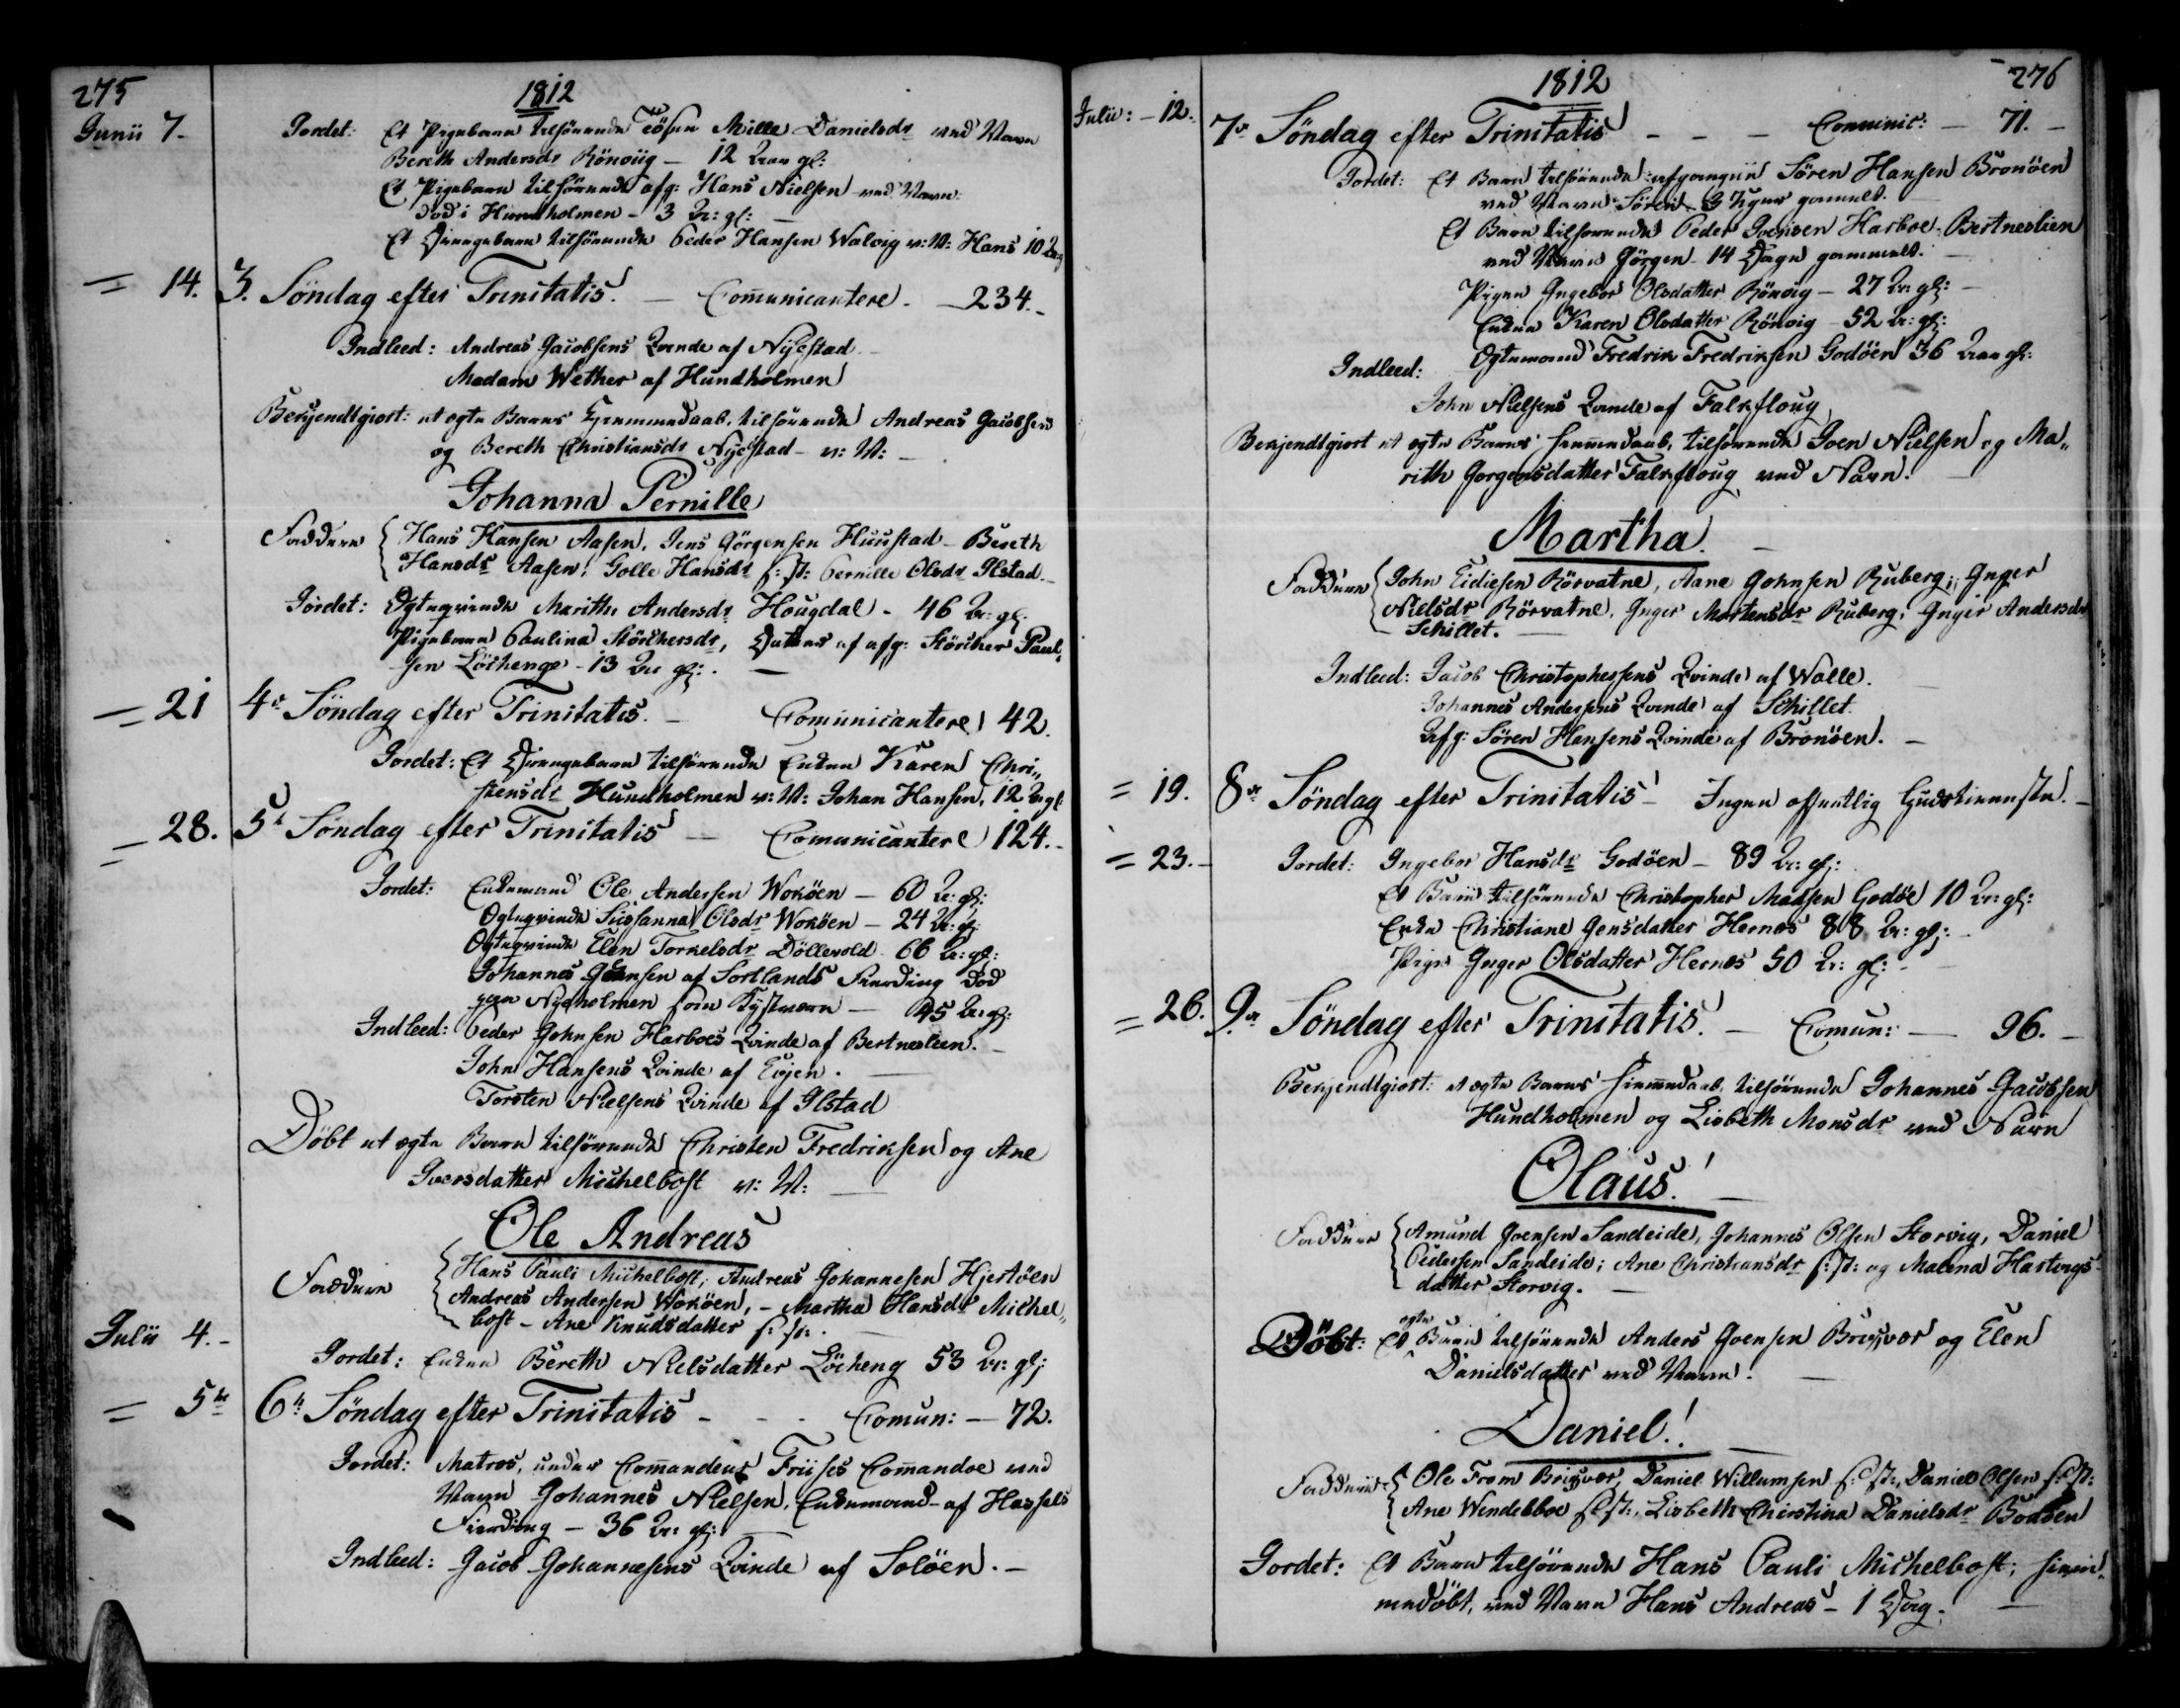 275
1812
Junii 7.
Jordet: Et Pigebarn tilhörende Tösen Mille Danielsdr ved Navn
Bereth Andersdr Rönviig — 12 Aar gl:
Et Pigebarn tilhörende afg: Hans Nielsen ved Navn:
död i Hundholmen — 3 Ar: gl:
Et Drengebarn tilhörende Peder Hansen Walvig v: N: Hans 10
= 14. 3. Söndag efter Trinitatis. — Com̅unicantere — 234.
Indleed: Andreas Jacobsens Qvinde af Nÿestad
Madam Wether af Hundholmen
Bekjendtgiort: et ægte Barns Hjemmedaab, tilhörende Andreas Jacobsen
og Bereth Christiansdr Nÿestad v: N:
Johanna Pernille
Faddere Hans Hansen Aasen, Jens Görgensen Huustad — Bereth
Hansdr Aasen, Golle Hansdr s: st: Pernille Olsdr Ilstad.
Jordet: Ogteqvinde Marithe Andersdr Hougdal — 46 Ar: gl.
Pigebarn Paulina Störchersdr, Datter af afg: Störcher Paul„
sen Löchenge — 13 Ar gl:
= 21 4de Söndag efter Trinitatis. — Comunicantere 42.
Jordet: Et Drengebarn tilhörende Enken Karen Chri„
stensdr Hundholmen v: N: Johan Hansen, 12 Ar gl:
= 28. 5te Söndag efter Trinitatis — Comunicantere 124.
Jordet: Enkemand Ole Andersen Woköen — 60 Ar: gl:
Ogteqvinde Sussanna Olsdr Woköen — 24 Ar: gl:
Ogteqvinde Elen Torkelsdr Döllevold 66 Ar: gl:
Johannes Jensen af Sortlands Fierding död
paa Nyeholmen som Kystværn — 45 Ar: gl:
Indleed: Peder Johnsen Harboes Qvinde af Bertneslien.
John Hansens Qvinde af Evjen.
Torsten Nielsens Qvinde af Ilstad
Döbt et ægte Barn tilhörende Christen Fredriksen og Ane
Iversdatter Michelbost v: N:
Ole Andreas
Faddere Hans Pauli Michelbost, Andreas Johannesen Hjertöen
Andreas Andersen Woköen, — Martha Hansdr Michel„
bost — Ane Knudsdatter s: st:
Julii 4.
Jordet: Enken Bereth Nielsdatter Löcheng 53 Ar: gl:
= 5te 6te Söndag efter Trinitatis — Comun: — 72.
Jordet: Matros, under Com̅andeur Friises Com̅andoe ved
Navn Johannes Nielsen, Enkemand af Hassels
Fierding — 36 Ar: gl:
Indleed: Jacob Johannesens Qvinde af Solöen.
276
1812
Julii: — 12. 7de Söndag efter Trinitatis — — — Comunic: — 71.
Jordet: Et Barn tilhörende afgangne Sören Hansen Bronöen
ved Navn Sören 3 Uger gammelt.
Et Barn tilhörende Peder Joensen Harboe, Bertneslien
ved Navn Görgen 14 Dage gammelt.
Pigen Ingebor Olsdatter Rönvig — 27 Ar: gl:
Enken Karen Olsdatter Rönvig — 52 Ar: gl:
Ogtemand Fredrik Fredriksen Godöen 36 Aar gl:
Indleed:
John Nielsens Qvinde af Falkfloug
Bekjendtgiort et ægte Barns Hiemmedaab, tilhörende Joen Nielsen og Ma„
rith Gorgensdatter Falkfloug ved Navn.
Martha.
Faddere John Eidiesen Körvatne, Aane Johnsen Ruberg, Inger
Nielsdr Körvatne, Inger Mortensdr Ruberg, Inger Andersdr
Schillet.
Indleed: Jacob Christophersens Qvinde af Walle.
Johannes Andersens Qvinde af Schillet.
Afg: Sören Hansens Qvinde af Bronöen.
= 19. 8de Söndag efter Trinitatis — Ingen offentlig Gudstieneste.
= 23. Jordet: Ingebor Hansdr Godöen — 89 Ar: gl:
Et Barn tilhörende Christopher Madsen Godöe 10 Ar: gl:
Enke Christiane Jensdatter Hernes 88 Ar: gl:
Pige Inger Olsdatter Hernes 50 Ar: gl:
= 26. 9de Söndag efter Trinitatis. — Comun: — 96.
Bekjendtgiort: et ægte Barns Hiemmedaab, tilhörende Johannes Jacobsen
Hundholmen og Lisbeth Monsdr ved Navn
Olaus.
Faddere Amund Joensen Sandeide, Johannes Olsen Storvig, Daniel
Pedersen Sandeide; Ane Christiansdr s: st: og Malena Hartvigs
datter Storvig.
Döbt: Et ægte Barn tilhörende Anders Joensen Brixvær og Elen
Danielsdatter ved Navn.
Daniel.
Faddere Ole From Brixvær, Daniel Willumsen s: st:, Daniel Olsen s: st:
Ane Wendelboe s: st:, Lisbeth Christina Danielsdr Bodöen
Jordet: Et Barn tilhörende Hans Pauli Michelbost, hiem„
medöbt, ved Navn Hans Andreas — 1 Dag.